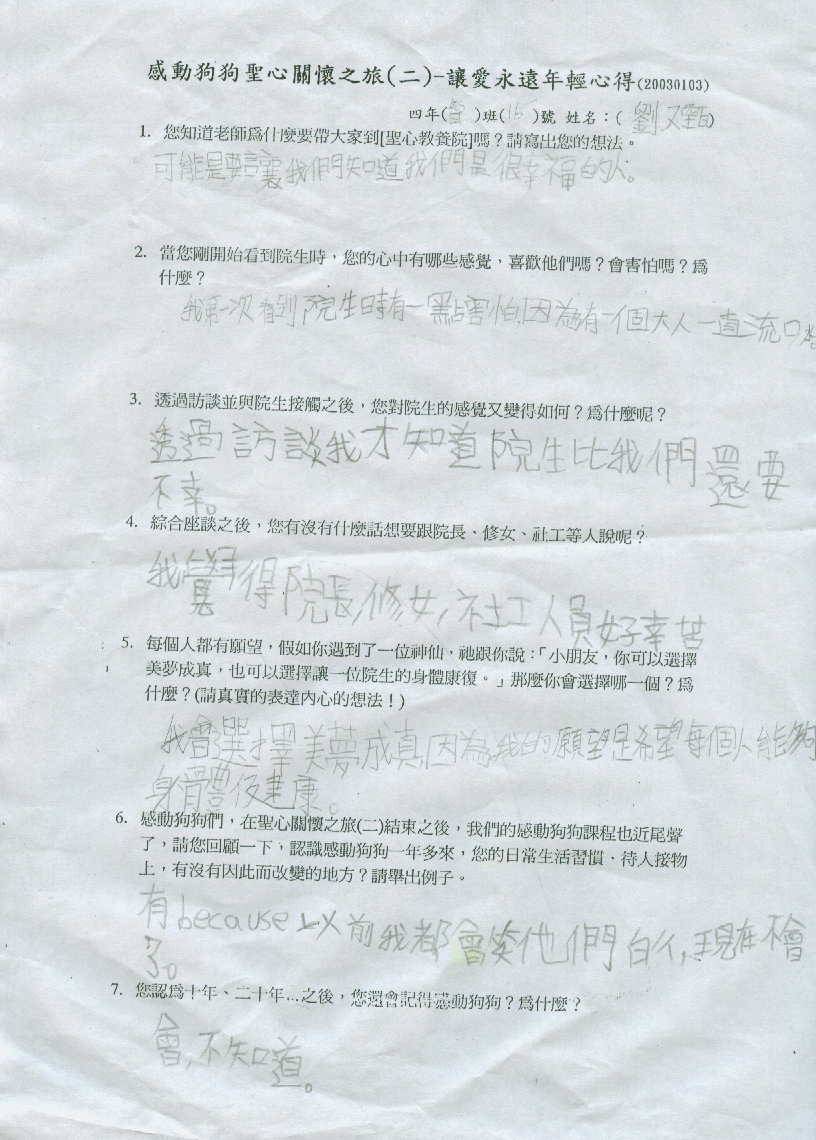 感動狗狗聖心關懷之旅(二)-讓愛永遠年輕心得(20030103)
四年(智)班(16)號 姓名：(劉又甄)
1. 您知道老師爲什麼要帶大家到[聖心教養院]嗎？請寫出您的想法。
可能是要讓我們知道我們是很幸福的人。
2. 當您剛開始看到院生時，您的心中有哪些感覺，喜歡他們嗎？會害怕嗎？爲
什麼？
我第一次看到院生時有一點害怕,因為有一個大人一直流口
3. 透過訪談並與院生接觸之後，您對院生的感覺又變得如何？爲什麼呢？
透過訪談我才知道院生比我們還要
不幸。
4. 綜合座談之後，您有沒有什麼話想要跟院長、修女、社工等人說呢？
我覺得院長,修女,社工人員好幸苦
5. 每個人都有願望，假如你遇到了一位神仙，祂跟你說：「小朋友，你可以選擇
美夢成真，也可以選擇讓一位院生的身體康復。」那麼你會選擇哪一個？爲
什麼？(請真實的表達內心的想法！)
我會選擇美夢成真,因為我的願望是希望每個人能夠
身體健康。
6. 感動狗狗們，在聖心關懷之旅(二)結束之後，我們的感動狗狗課程也近尾聲
了，請您回顧一下，認識感動狗狗一年多來，您的日常生活習慣、待人接物
上，有沒有因此而改變的地方？請舉出例子。
有because以前我都會笑他們白ㄔ,現在不會
了。
7. 您認爲十年、二十年…之後，您還會記得感動狗狗？爲什麼？
會,不知道。